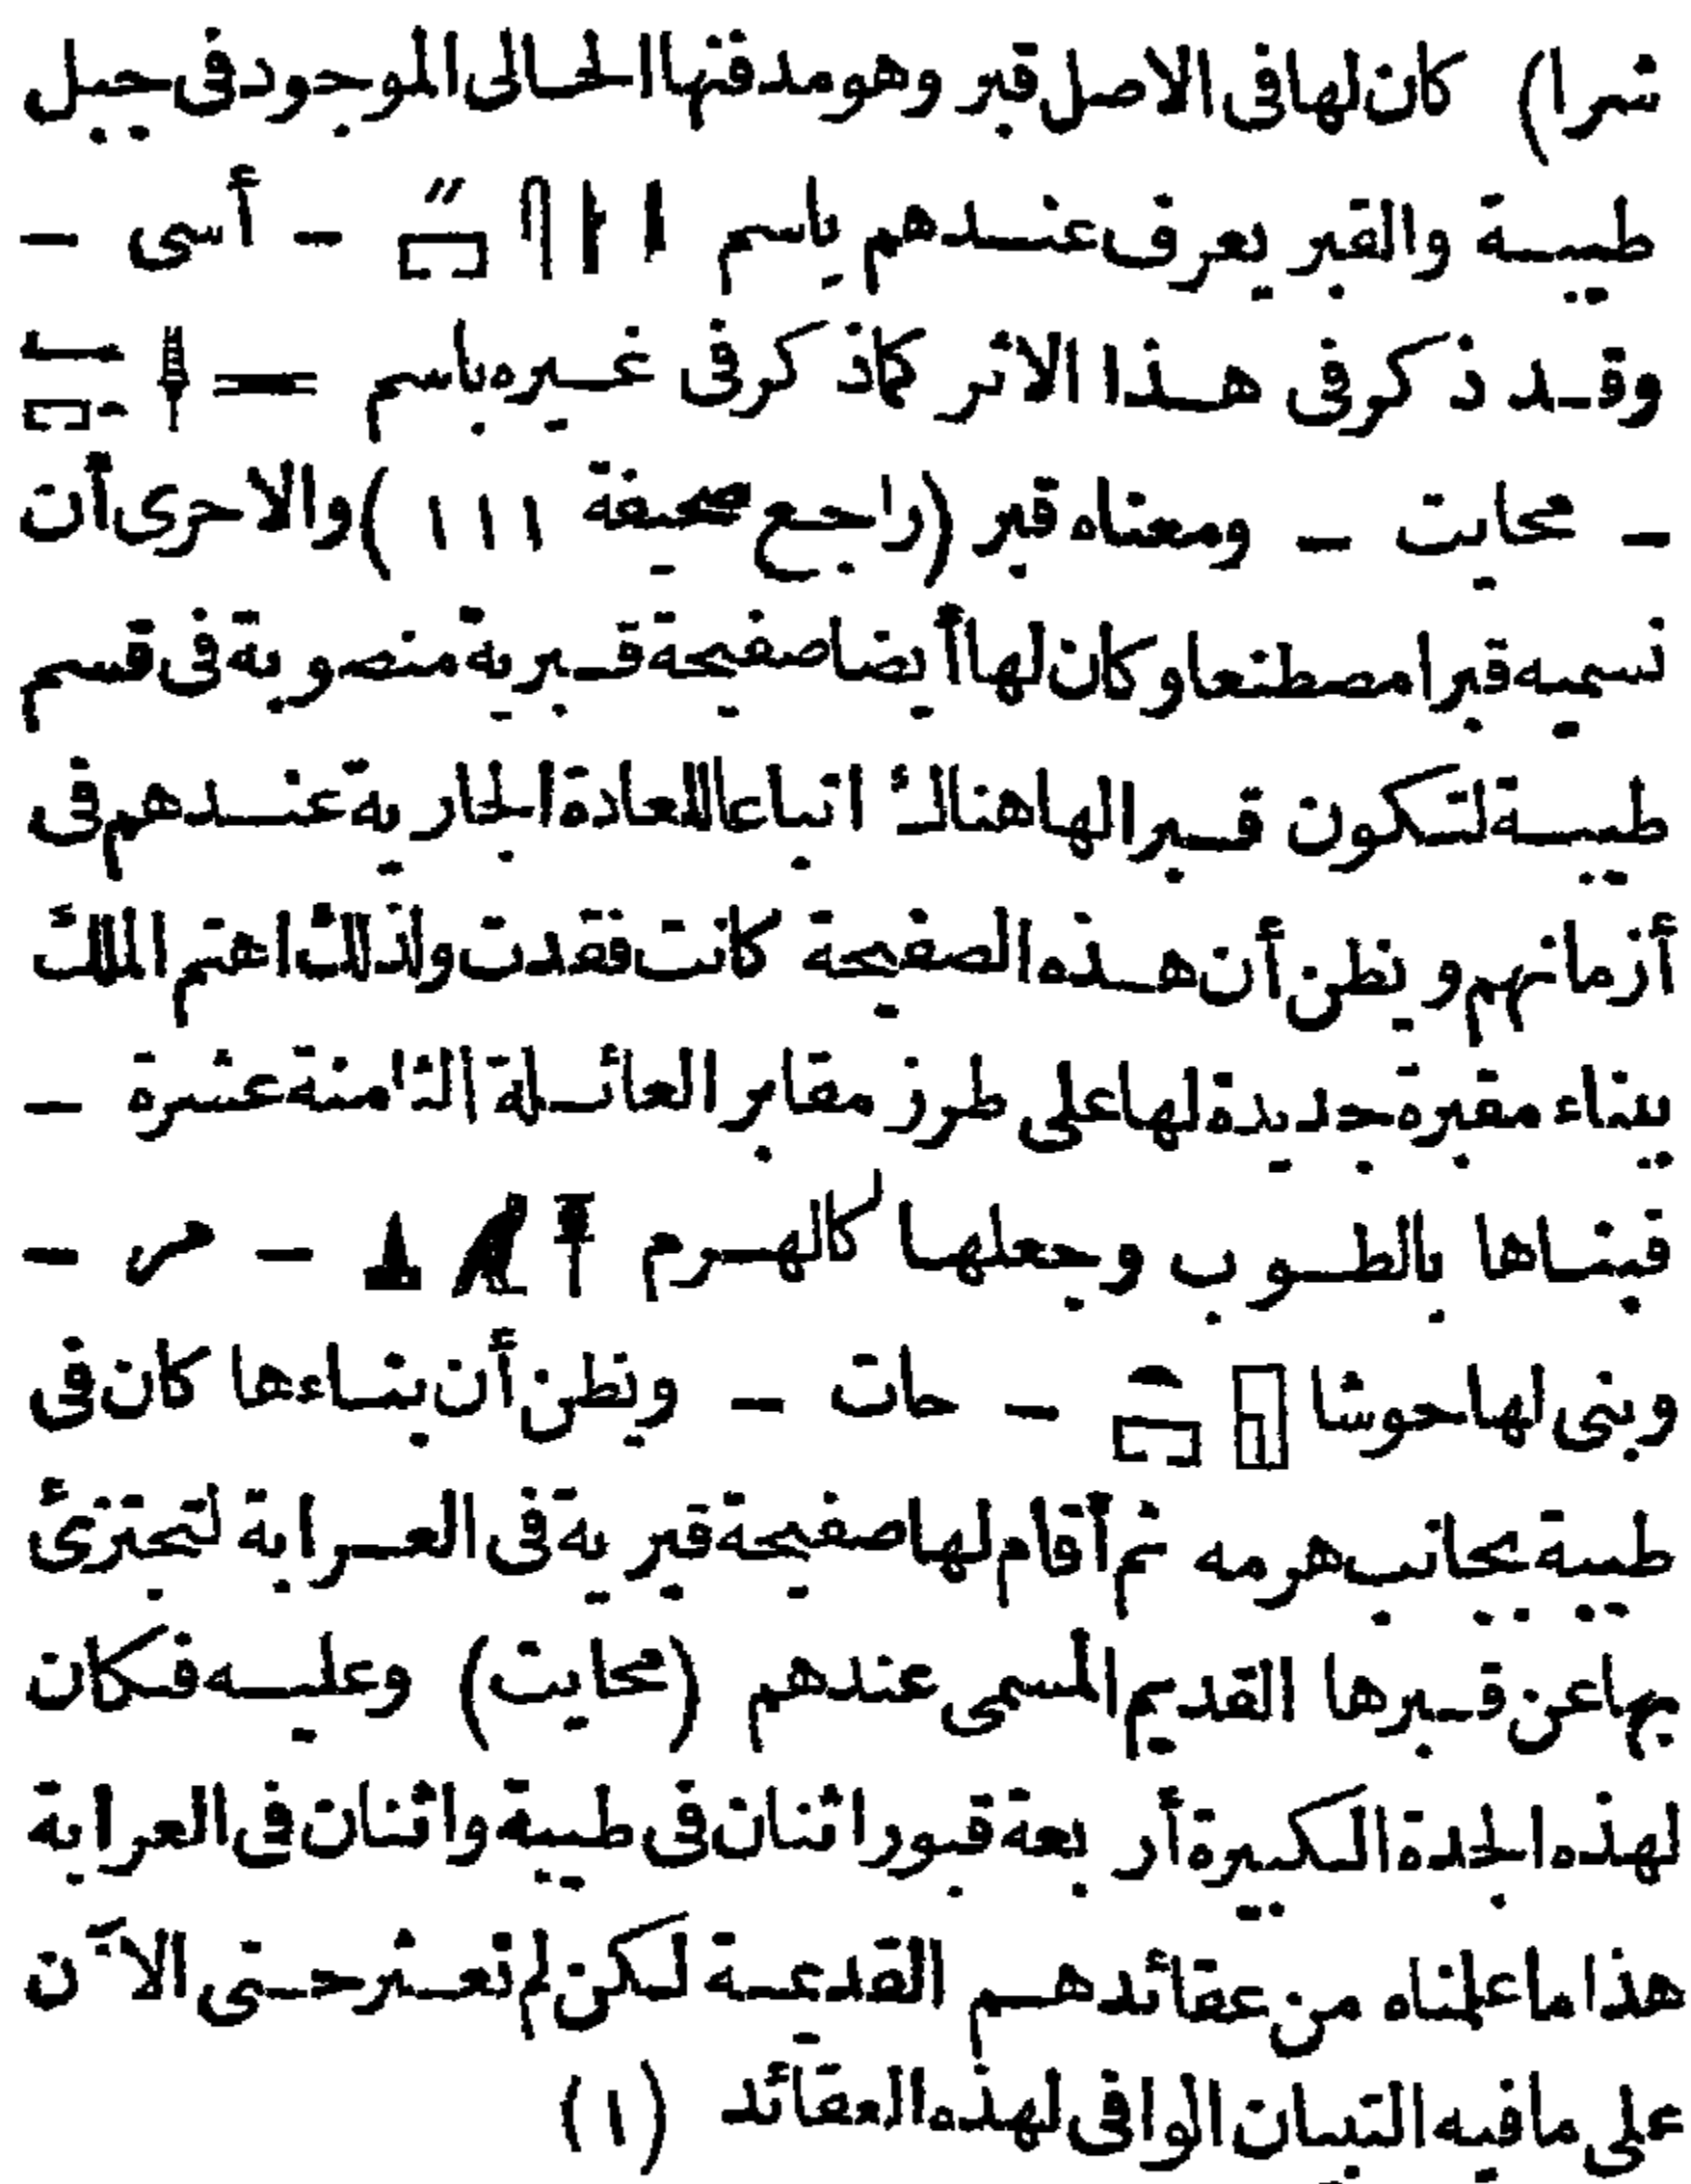 شرا) كان لها فى الاصل قبر وهو مدفنها الحالى الموجود فى جبل
طيبة والقبر يعرف عندهم باسم - أسى -
وقد ذكر فى هذا الاثر كما ذكر فى غيره باسم
- محايت - ومعناه قبر (راجع صحيفة ١١١) والاحرى أن
نسميه قبرا مصطنعا وكان لها أيضا صفيحة قبرية منصوبة فى قسم
طيبة لتكون قبرا لها هناك اتباعا للعادة الجارية عندهم فى
أزمانهم ويظن أن هذه الصفيحة كانت فقدت ولذلك اهتم الملك
ببناء مقبرة جديدة لها على طرز مقابر العائلة الثامنة عشرة -
فبناها بالطوب وجعلها كالهرم - مر -
وبنى لها حوشا - حات - ويظن أن بناءها كان فى
طيبة بجانب هرمه ثم أقام لها صفيحة قبرية فى العرابة لتجتزئ
بها عن قبرها القديم المسمى عندهم (محايت) وعليه فكان
لهذه الجدة الكبيرة أربعة قبور اثنان فى طيبة واثنان فى العرابة
هذا ما علمناه من عقائدهم القديمة لكن لم نعثر حتى الآن
على ما فيه التبيان الوافى لهذه العقائد (١)